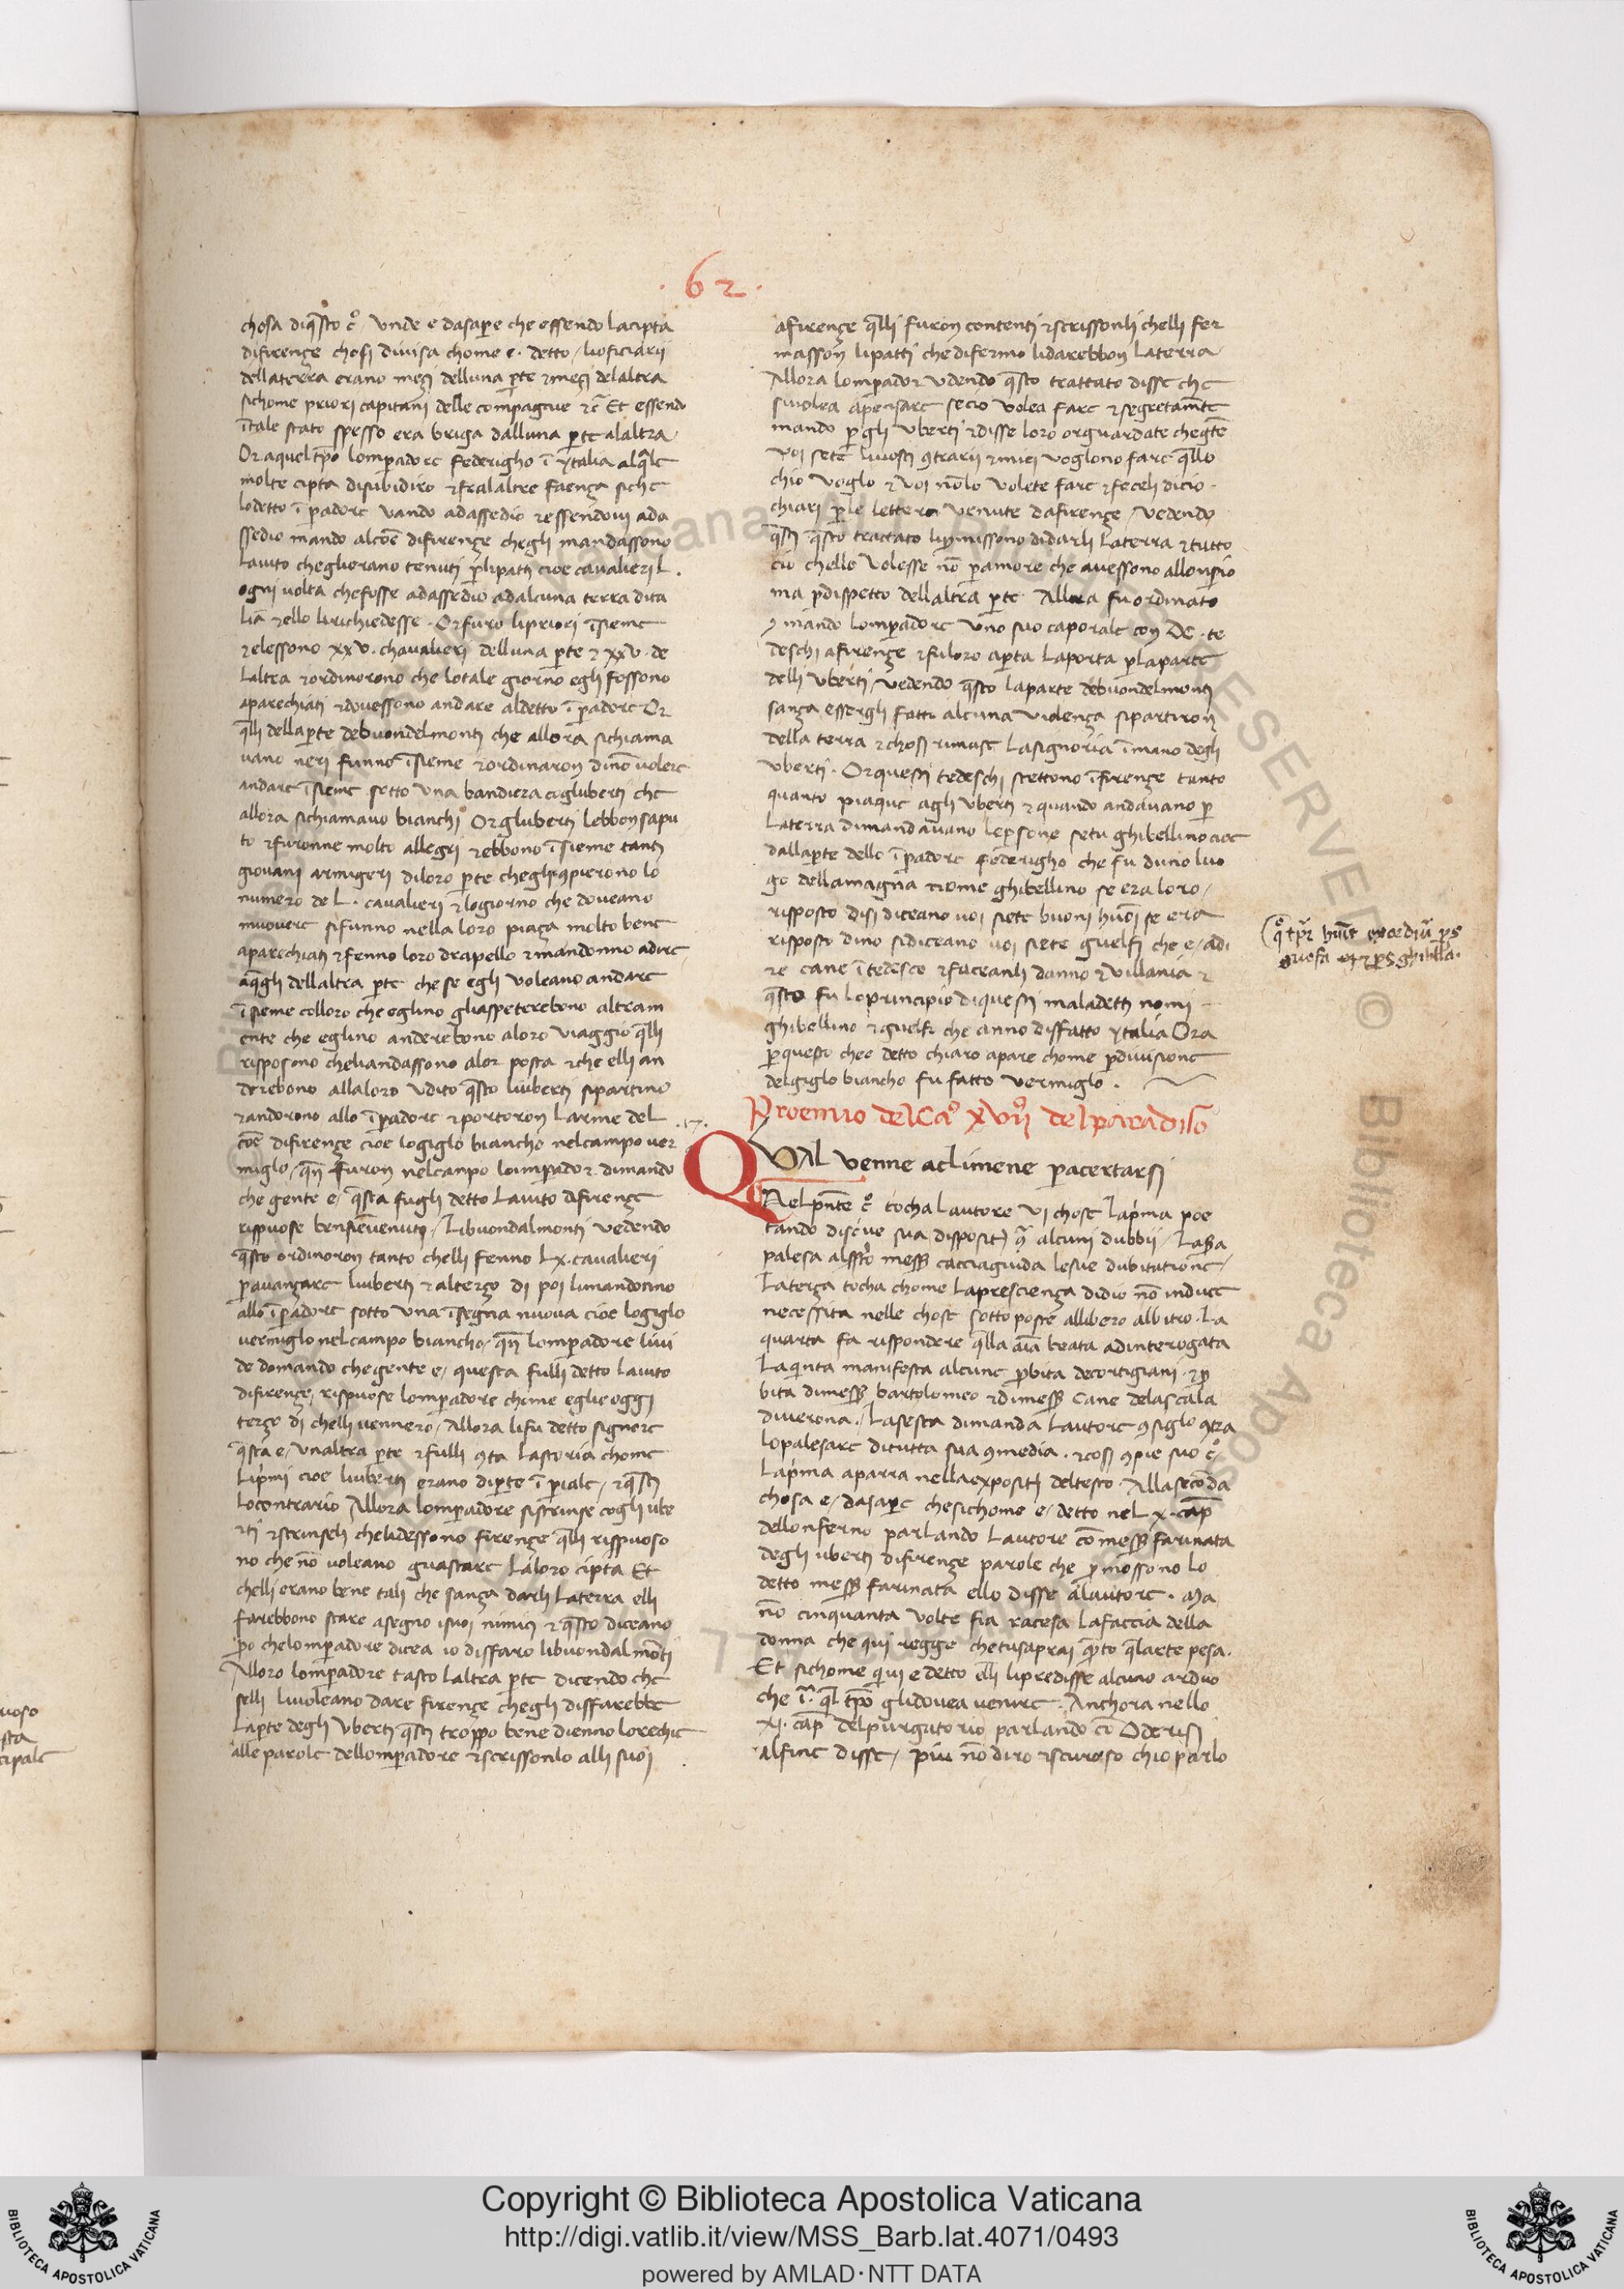 .62.
chosa diq̄sto c̊ / unde e dasap̱e che essendo lacipta
difirençe chosi divisa chome e. detto / lioficiarii
dellaterra erano meçi delluna p̱te ⁊meçi delaltra
sichome priori capitani delle compagnie ⁊c̄ Et essendo
ītale stato spesso era briga dalluna p̱te alaltra
Or aquel tp̄o lomp̱adore federigho ī ytalia alq̄le
molte cipta disubidiro ⁊fralaltre faença siche
lodetto īp̱adore vando adassedio ⁊essendovi ada
ssedio mando alcōe difirençe chegli mandassono
laiuto cheglierano tenuti p̱lipatti cioe cavalieri L.
ogni volta chefosse adassedio adalcuna terra dita
lia ⁊ello lirichiedesse. Orfuro lipriori īsieme
⁊elessono xxv. chavalieri delluna p̱te ⁊ xxv. de
laltra ⁊ordinorono che lotale giorno egli fossono
aparechiati ⁊dovessono andare aldetto īp̱adore Or
q̄lli dellap̱te debuondelmonti che allora sichiama
vano neri funno īsieme ⁊ordinaron dinō volere
andare īsieme sotto una bandiera cogluberti che
allora sichiamavo bianchi Orgluberti lebbon sapu
to ⁊furonne molto allegri ⁊ebbono īsieme tanti
giovani armigeri diloro p̱te cheglꝯpierono lo
numero de L. cavalieri ⁊logiorno che doveano
muovere sifunno nella loro piaça molto bene
aparechiati ⁊fenno loro drapello ⁊mandonno adire
aq̄gli dellaltra p̱te che se egli voleano andare
īsieme colloro che eglino gliaspeterebono altram
ente che eglino anderebono aloro viaggio q̄lli
risposono cheliandassono alor posta ⁊che elli an
derebono allaloro Udito q̄sto liuberti sipartino
⁊andorono allo īp̱adore ⁊portoron larme deL
cōe difirençe cioe logiglo biancho nelcampo ver
miglo / qn̄ furon nelcanpo lomp̱ador. dimando
che gente e / q̄sta fugli detto laiuto difirençe
rispuose bensievenuto / Libuondalmonti vedendo
q̄sto ordinoron tanto chelli fenno Lx. cavalieri
p̱avançare liuberti ⁊alterço di poi limandonno
allo īp̱adore sotto una īsegna nuova cioe logiglo
vermiglo nel campo biancho / qn̄ lomp̱adore livi
de domando chegente e / questa fulli detto laiuto
difirençe / rispuose lomp̱adore chome eglie oggi
terço di chelli vennero / Allora lifu detto signore
q̄sta e / unaltra p̱te ⁊fulli ꝯta lastoria chome
lip̱mi cioe liuberti erano dip̱te īp̱iale / ⁊q̄sti
locontrario Allora lomp̱adore sistrinse cogli ube
rti ⁊strinseli chelidessono firençe q̄lli rispuoso
no che nō voleano guastare laloro cipta Et
chelli erano bene tali che sança darli laterra elli
farebbono stare asegno isuoi nimici ⁊ q̄sto diceano
p̱o chelomp̱adore dicea io disfaro libuondalmōti
Alloro lomp̱adore tasto laltra p̱te dicendo che
selli livoleano dare firençe chegli disfarebbe
lap̱te degli uberti q̄sti troppo bene dienno lorechie
alle parole dellomp̱adore ⁊scrissonlo alli suoi
afirençe q̄lli furon contenti ⁊scrissonli chelli fer
masson lipatti che difermo lidarebbon laterra
Allora lomp̱ador udendo q̄sto trattato disse che
sivolea ap̱ensare secio volea fare ⁊segretam̄te
mando p̱gli uberti ⁊disse loro orguardate chegēte
voi sete livostri ꝯtrarii ⁊miei voglono fare q̄llo
chio voglo ⁊ voi nōlo volete fare ⁊feceli dicio
chiari p̱le lettere venute dafirençe / vedendo
q̄sti q̄sto trattato liꝓmissono didarli laterra ⁊tutto
cio chello volesse nō p̱amore che avessono allonp̱io
ma p̱dispetto dellaltra p̱te Allora fu ordinato
⁊ mando lomp̱adore uno suo caporale con DC. te
deschi afirençe ⁊fuloro ap̱ta laporta p̱laparte
delli uberti / vedendo q̄sto laparte debuondelmonti
sança essergli fatta alcuna violença sipartiron
della terra ⁊chosi rimase lasignoria īmano degli
uberti. Orquesti tedeschi stettono īfirençe tanto
quanto piaque agli uberti ⁊ quando andavano p̱
laterra dimandavano lep̱sone setu ghibellino cioe
dallap̱te dello īp̱adore federigho che fu duno luo
go dellamagna nome ghibellino se era loro /
risposto disi diceano voi siete buoni huōi se era
risposto dino sidiceano voi siete guelfi che e / adi
re cane ītedesco ⁊faceanli danno ⁊ villania ⁊
q̄sto fu loprincipio diquesti maladetti nomi
ghibellino ⁊guelfi che anno disfatto ytalia Ora
p̱questo cheo detto chiaro apare chome p̱divisione
delgiglo biancho fu fatto vermiglo.
Proemio delCå xvii̊ delparadiso
.17.
QUAL venne aclimene p̱acertarsi
Nelp̄nte c̊ tocha lautore vi chose lap̱ma poe
tando discrive sua dispositō q̄ alcuni dubbii / Lasēa
palesa alsp̄to mess̄ cacciaguida lesue dubitatione /
Laterça tocha chome laprescienza didio nō induce
necessita nelle chose sottoposte allibero albitro. La
quarta fa rispondere q̄lla aīa beata adinterogata
Laqinta manifesta alcune ꝓbita decortigiani. ⁊ꝓ
bita dimess̄ bartolomeo ⁊dimess̄ Cane delascala
diverona. / Lasesta dimanda lautore ꝯsiglo ꝯtra
lopalesare ditutta sua ꝯmedia. ⁊cosi ꝯpie suo c̊
Lap̱ma aparra nellaexpositō deltesto. Allasecōda
chosa e / dasap̱e chesichome e / detto nel x. cap̄
dellonferno parlando lautore cō mess̄ farinata
degli uberti difirençe parole che ꝓmossono lo
detto mess̄ farinata ello disse alautore. Ma
nō cinquanta volte fia racesa lafaccia della
donna che qui regge chetusaprai q̄to q̄larte pesa.
Et sichome qui e detto elli lipredisse alcuno arduo
che ī q̄l tp̄o glidovea venire. Anchora nello
xi. cap̄ delpurgatorio parlando cō Oderisi
alfine disse / piu nō diro ⁊scuroso chio parlo
Copyright © Biblioteca Apostolica Vaticana
http://digi.vatlib.it/view/MSS_Barb.lat.4071/0493
powered by AMLAD·NTT DATA
BIBLIOTECA APOSTOLICA VATICANA
BIBLIOTECA APOSTOLICA VATICANA